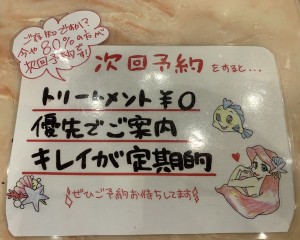 ご存知ですか?
今や80%の方が
次回予約です!
次回予約をすると…
トリートメント¥0
優先でご案内
キレイが定期的
ぜひご予約お待ちしてます